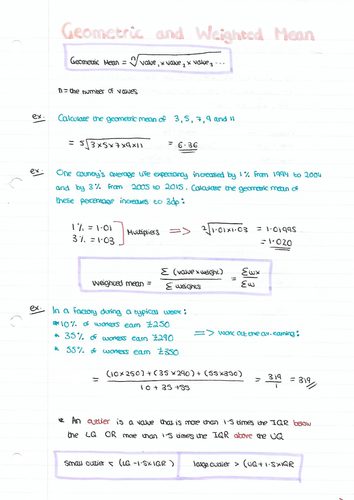 Geometric and Weighted Mean
Geometric Mean = ⁿ√value₁ × value₂ × value₃ ...
n = the number of values
ex. Calculate the geometric mean of 3, 5, 7, 9 and 11
= ⁵√3×5×7×9×11 = 6.36
ex. One country's average life expectancy increased by 1% from 1994 to 2004
and by 3% from 2005 to 2015. Calculate the geometric mean of
these percentage increases to 3dp:
1% = 1.01
3% = 1.03
Multipliers => ²√1.01×1.03 = 1.01995
= 1.020
Weighted mean = Σ (value × weight) / Σ weights = Σwx / Σw
ex. In a factory during a typical week:
* 10% of workers earn £250
* 35% of workers earn £290 => work out the av. earning:
* 55% of workers earn £350
= (10×250) + (35×290) + (55×350) / 10 + 35 + 55 = 319 / 1 = 319
* An outlier is a value that is more than 1.5 times the IQR below
the LQ OR more than 1.5 times the IQR above the UQ
Small outlier < (LQ - 1.5×IQR)
large outlier > (UQ + 1.5×IQR